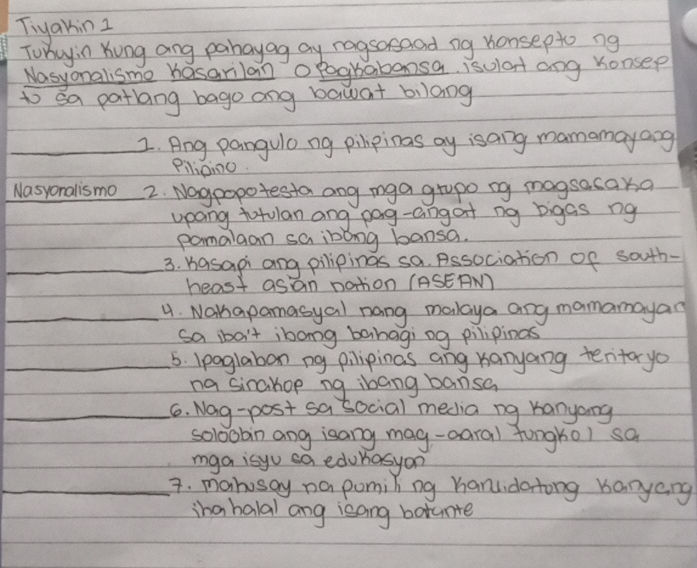 Tiyakin 1
Tukuyin kung ang pahayag ay nagsasaad ng konsepto ng
Nasyonalismo kasarilan o Pagkabansa. isulat ang konsep
to sa patlang bago ang bawat bilang
1. Ang pangulo ng pilipinas ay isang mamamayang
Pilipino.
Nasyonalismo 2. Nagpopotesta ang mga grupo ng magsasaka
upang tutulan ang pag-angat ng bigas ng
pamalaan sa ibang bansa.
3. Kasapi ang pilipinas sa Association of south-
heast asian nation (ASEAN)
4. Nakapamasyal nang malaya ang mamamayan
sa iba't ibang bahagi ng pilipinas
5. Ipaglaban ng pilipinas ang kanyang teritoryo
na sinakop ng ibang bansa
6. Nag-post sa social media ng kanyang
soloobin ang isang mag-aaral tungkol sa
mga isyu sa edukasyon
7. mahusay na pumili ng kanidatong kanyang
ihahalal ang isang botante